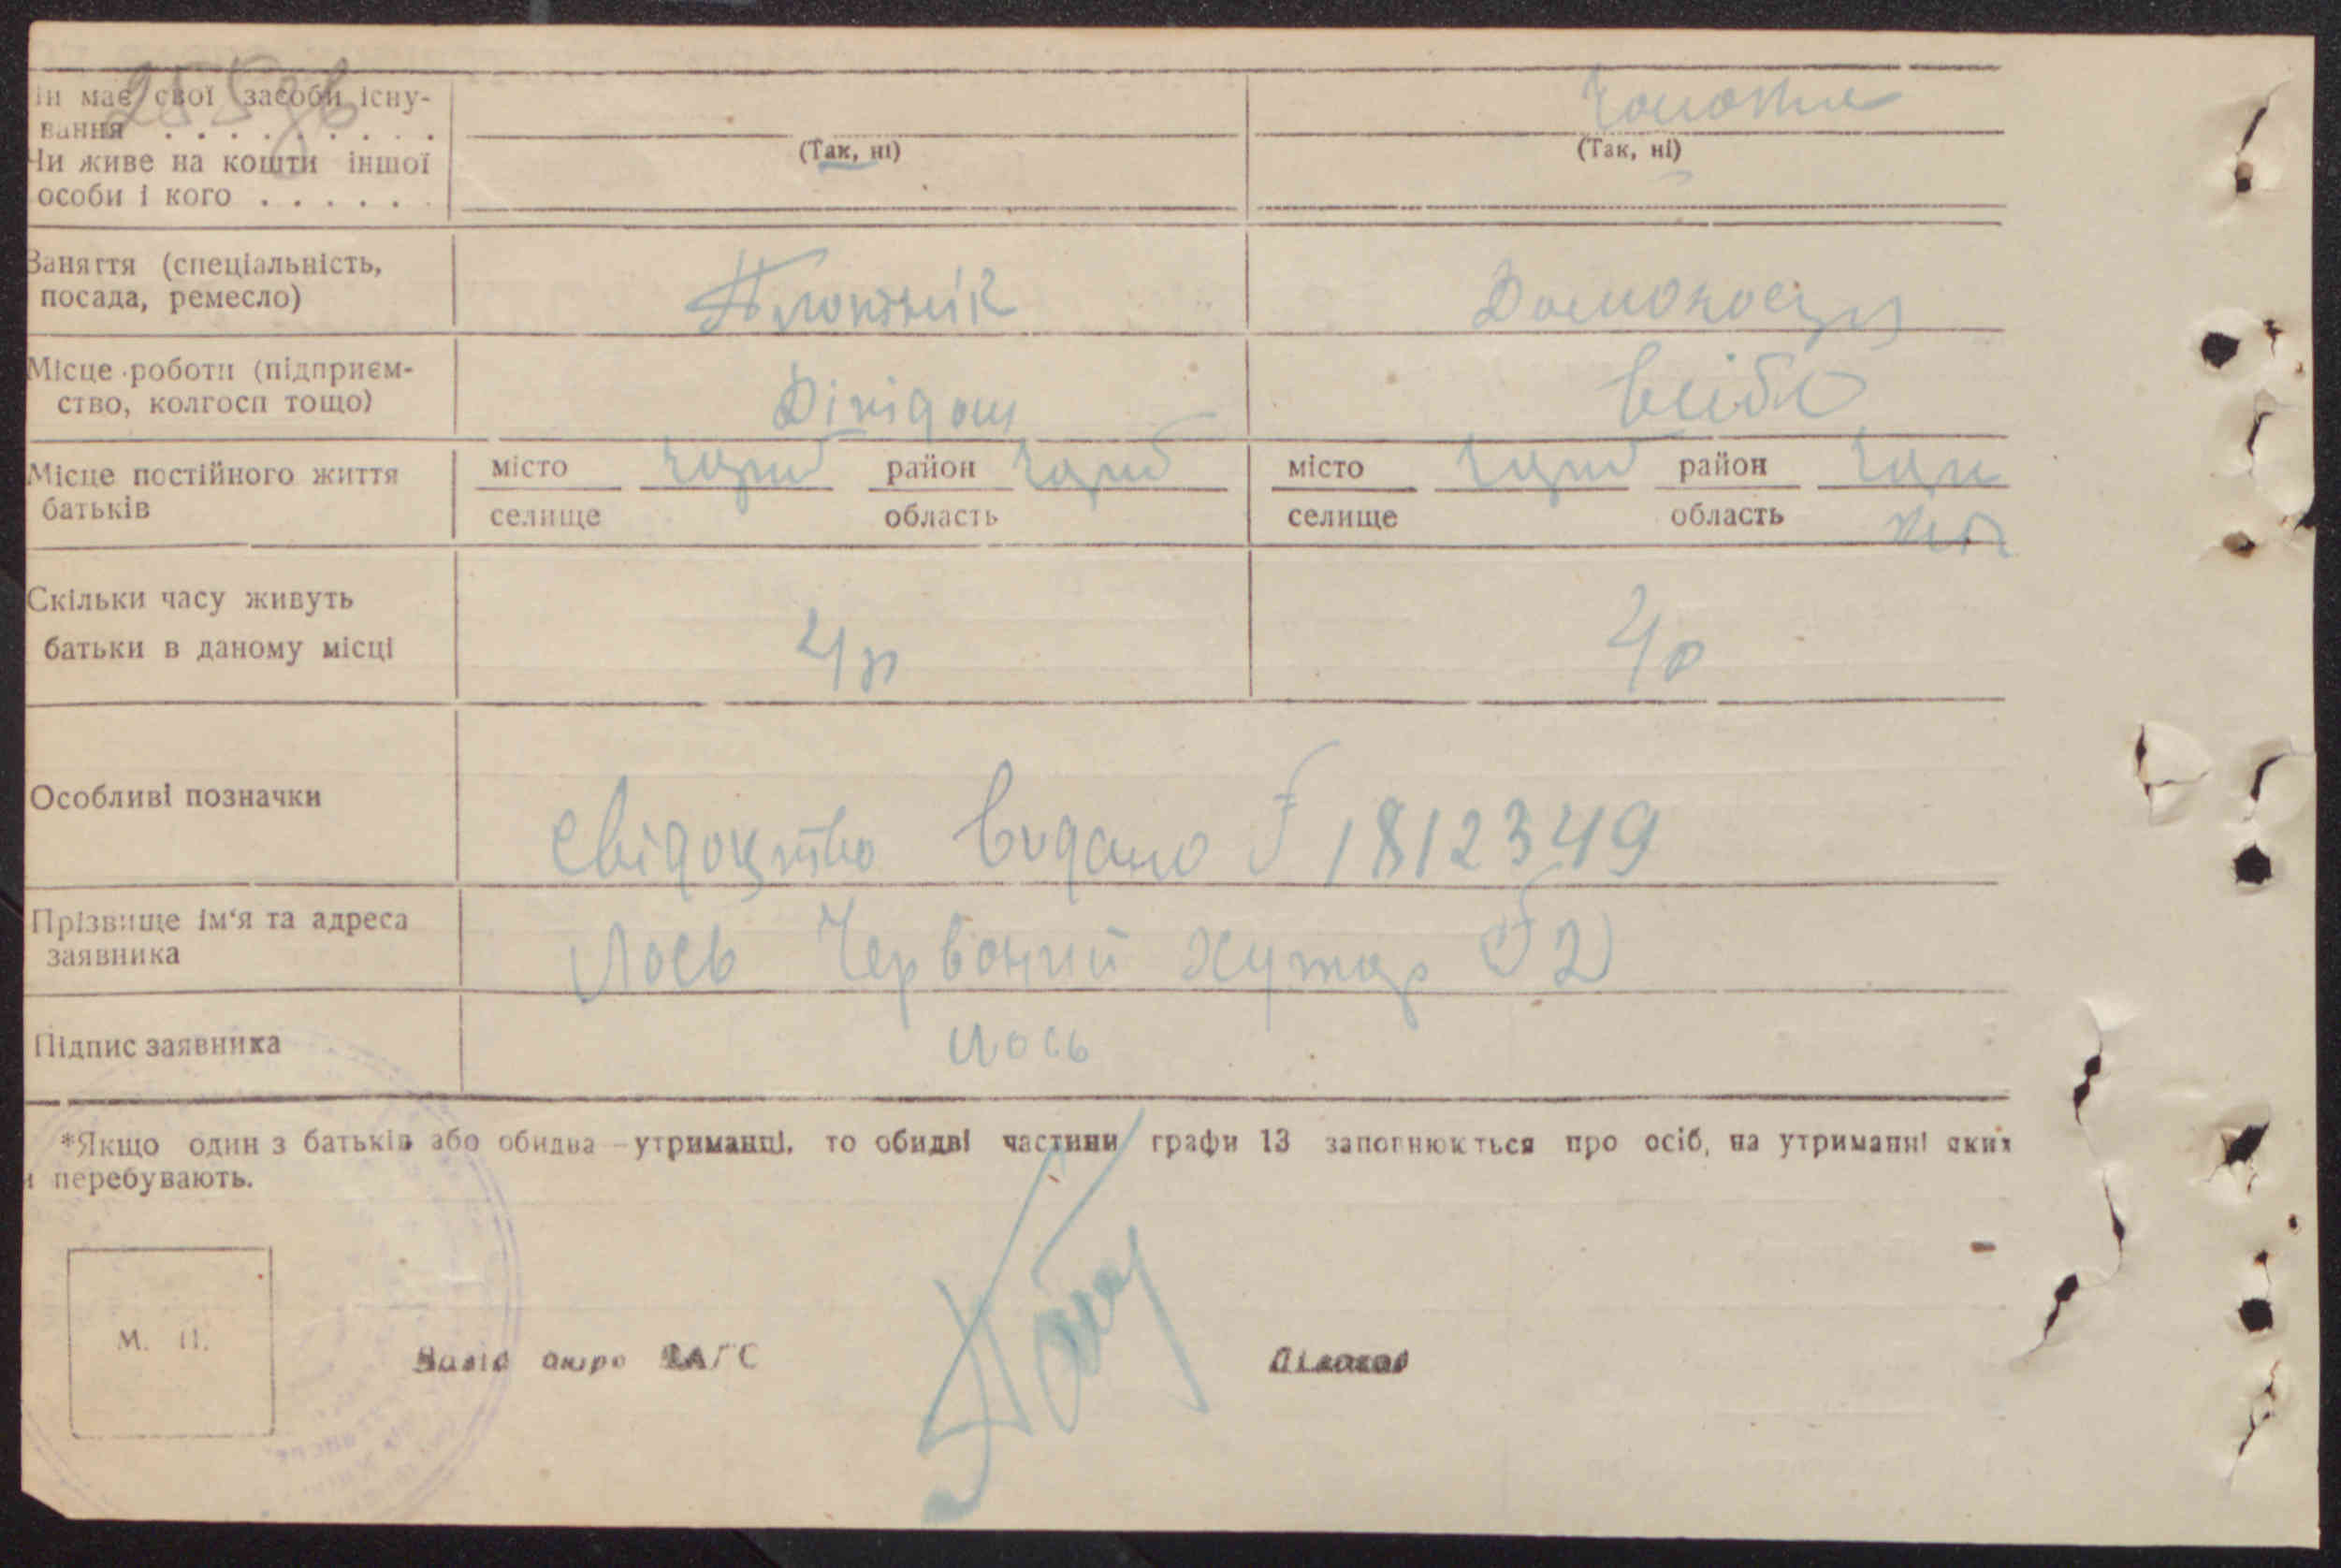 255зв
ін має свої засоби існу-
вання . . . . . . . . .
Чи живе на кошти іншої
особи і кого . . . . . .
(Так, ні)
(Так, ні)
Заняття (спеціальність,
посада, ремесло)
Плотнік
Домохоз
Місце роботи (підприєм-
ство, колгосп тощо)
Місце постійного життя
батьків
місто район
селище область
місто район
селище область
Скільки часу живуть
батьки в даному місці
4р
4р
Особливі позначки
свідоцтво видано 1812349
Прізвище ім'я та адреса
заявника
Лось Червоний Хутар 52
Підпис заявника
Лось
*Якщо один з батьків або обидва — утриманці, то обидві частини графи 13 заповнюються про осіб, на утриманні яких
и перебувають.
М. П.
Завід бюро ЗАГС
Діловод